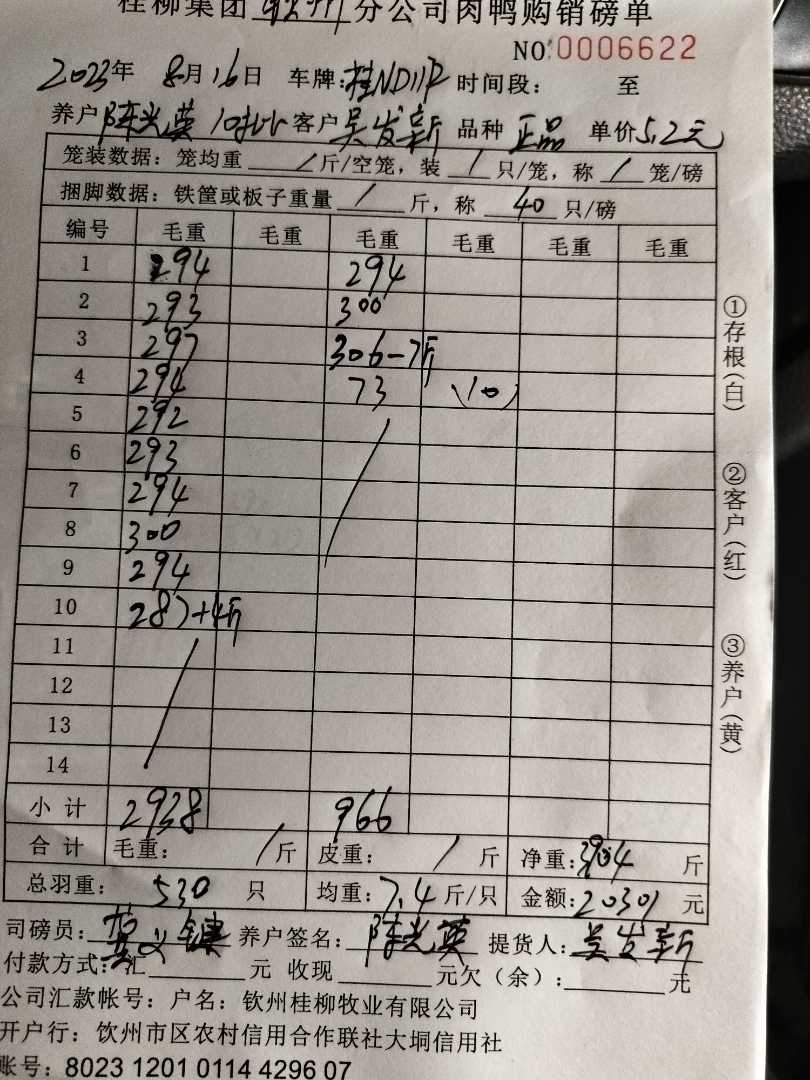 桂柳集团 钦州 分公司肉鸭购销磅单
NO:0006622
2023年 8月16日 车牌:桂ND11P 时间段: 至
养户 陈光英 10批 客户 吴发新 品种 正品 单价5.2元
笼装数据: 笼均重 / 斤/空笼, 装 / 只/笼, 称 / 笼/磅
捆脚数据: 铁筐或板子重量 / 斤, 称 40 只/磅
编号 毛重 毛重 毛重 毛重 毛重 毛重
1 294 294
2 293 300
3 297 306-7斤
4 294 73 (10)
5 292
6 293
7 294
8 300
9 294
10 287+4斤
11
12
13
14
小计 2938 966
合计 毛重: / 斤 皮重: / 斤 净重:3904 斤
总羽重: 530 只 均重:7.4 斤/只 金额:20301 元
司磅员: 养户签名: 陈光英 提货人: 吴发新
付款方式: 汇 元 收现 元欠(余): 元
公司汇款帐号: 户名: 钦州桂柳牧业有限公司
开户行: 钦州市区农村信用合作联社大垌信用社
账号: 8023 1201 0114 4296 07
①存根(白)
②客户(红)
③养户(黄)